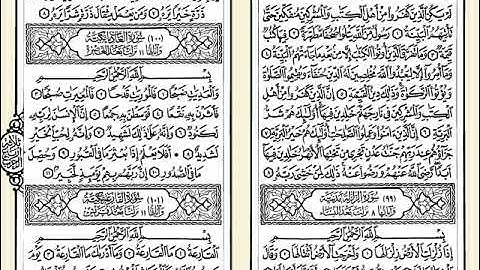 لَمْ يَكُنِ الَّذِينَ كَفَرُوا مِنْ أَهْلِ الْكِتَٰبِ وَالْمُشْرِكِينَ مُنفَكِّينَ حَتَّىٰ
تَأْتِيَهُمُ الْبَيِّنَةُ ١ رَسُولٌ مِّنَ اللَّهِ يَتْلُوا صُحُفًا مُّطَهَّرَةً ٢ فِيهَا كُتُبٌ
قَيِّمَةٌ ٣ وَمَا تَفَرَّقَ الَّذِينَ أُوتُوا الْكِتَٰبَ إِلَّا مِنْ بَعْدِ مَا جَاءَتْهُمُ الْبَيِّنَةُ ٤
وَمَا أُمِرُوا إِلَّا لِيَعْبُدُوا اللَّهَ مُخْلِصِينَ لَهُ الدِّينَ حُنَفَاءَ وَيُقِيمُوا الصَّلَوٰةَ
وَيُؤْتُوا الزَّكَوٰةَ وَذَٰلِكَ دِينُ الْقَيِّمَةِ ٥ إِنَّ الَّذِينَ كَفَرُوا مِنْ أَهْلِ
الْكِتَٰبِ وَالْمُشْرِكِينَ فِي نَارِ جَهَنَّمَ خَٰلِدِينَ فِيهَا أُولَٰئِكَ هُمْ شَرُّ
الْبَرِيَّةِ ٦ إِنَّ الَّذِينَ ءَامَنُوا وَعَمِلُوا الصَّٰلِحَٰتِ أُولَٰئِكَ هُمْ خَيْرُ الْبَرِيَّةِ ٧
جَزَاؤُهُمْ عِندَ رَبِّهِمْ جَنَّٰتُ عَدْنٍ تَجْرِي مِن تَحْتِهَا الْأَنْهَٰرُ خَٰلِدِينَ فِيهَا
أَبَدًا رَّضِيَ اللَّهُ عَنْهُمْ وَرَضُوا عَنْهُ ذَٰلِكَ لِمَنْ خَشِيَ رَبَّهُ ٨
(٩٩) سُورَةُ الزَّلْزَلَةِ مَدَنِيَّة
وَآيَاتُهَا ٨ نَزَلَتْ بَعْدَ النِّسَاء
بِسْمِ اللَّهِ الرَّحْمَٰنِ الرَّحِيمِ
إِذَا زُلْزِلَتِ الْأَرْضُ زِلْزَالَهَا ١ وَأَخْرَجَتِ الْأَرْضُ أَثْقَالَهَا ٢ وَقَالَ
ذَرَّةٍ خَيْرًا يَرَهُ ٧ وَمَن يَعْمَلْ مِثْقَالَ ذَرَّةٍ شَرًّا يَرَهُ ٨
(١٠٠) سُورَةُ العَادِيَاتِ مَكِّيَّة
وَآيَاتُهَا ١١ نَزَلَتْ بَعْدَ العَصْر
بِسْمِ اللَّهِ الرَّحْمَٰنِ الرَّحِيمِ
وَالْعَٰدِيَٰتِ ضَبْحًا ١ فَالْمُورِيَٰتِ قَدْحًا ٢ فَالْمُغِيرَٰتِ صُبْحًا ٣
فَأَثَرْنَ بِهِ نَقْعًا ٤ فَوَسَطْنَ بِهِ جَمْعًا ٥ إِنَّ الْإِنسَٰنَ لِرَبِّهِ
لَكَنُودٌ ٦ وَإِنَّهُ عَلَىٰ ذَٰلِكَ لَشَهِيدٌ ٧ وَإِنَّهُ لِحُبِّ الْخَيْرِ
لَشَدِيدٌ ٨ أَفَلَا يَعْلَمُ إِذَا بُعْثِرَ مَا فِي الْقُبُورِ ٩ وَحُصِّلَ
مَا فِي الصُّدُورِ ١٠ إِنَّ رَبَّهُم بِهِمْ يَوْمَئِذٍ لَّخَبِيرٌ ١١
(١٠١) سُورَةُ القَارِعَةِ مَكِّيَّة
وَآيَاتُهَا ١١ نَزَلَتْ بَعْدَ قُرَيْش
بِسْمِ اللَّهِ الرَّحْمَٰنِ الرَّحِيمِ
الْقَارِعَةُ ١ مَا الْقَارِعَةُ ٢ وَمَا أَدْرَىٰكَ مَا الْقَارِعَةُ ٣ يَوْمَ